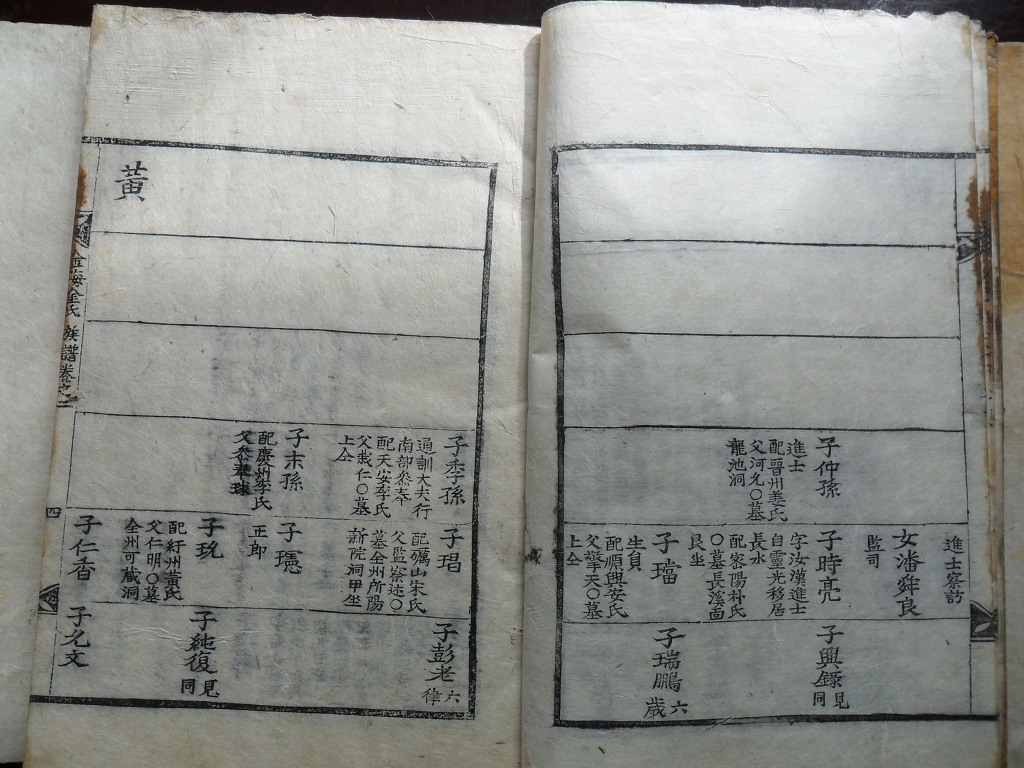 進士察訪
女潘舜良
監司
子仲孫
進士
配晉州姜氏
父河九〇墓
龍池洞
子時亮
字汝漢進士
自靈光移居
長水
配密陽朴氏
〇墓長溪面
艮坐
子璫
生員
配順興安氏
父擎天〇墓
上仝
子興錄
見同
子瑞鵬
六歲
子季孫
通訓大夫行
南部叅奉
配天安李氏
父哉仁〇墓
上仝
子末孫
配慶州李氏
子琩
配礪山宋氏
父監察述〇
墓全州所陽
新院洞甲坐
子璁
正郎
子玧
配紆州黃氏
父仁明〇墓
全州可藏洞
子仁香
子彭老
六律
子純復
見同
子名文
黃
金海金氏族譜卷之二
四